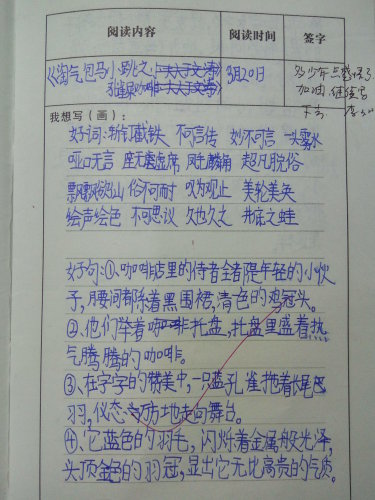 阅读内容 阅读时间 签字
《淘气包马小跳之 3月20日
孔雀咖啡
加油
我想写（画）：
好词：斩钉截铁 不可言传 妙不可言 一头雾水
哑口无言 座无虚席 凤毛麟角 超凡脱俗
飘飘欲仙 俗不可耐 叹为观止 美轮美奂
绘声绘色 不可思议 久也久之 井底之蛙
好句：①、咖啡店里的侍者全都是年轻的小伙
子，腰间都系着黑围裙，清色的 冠头。
②、他们举着咖啡托盘，托盘里盛着热
气腾腾的咖啡。
③、在字字的赞美中，一只蓝孔雀拖着长尾巴
羽，仪态 地走向舞台。
④、它蓝色的羽毛，闪烁着金属般光泽，
头顶金色的羽冠，显出它无比高贵的气质。